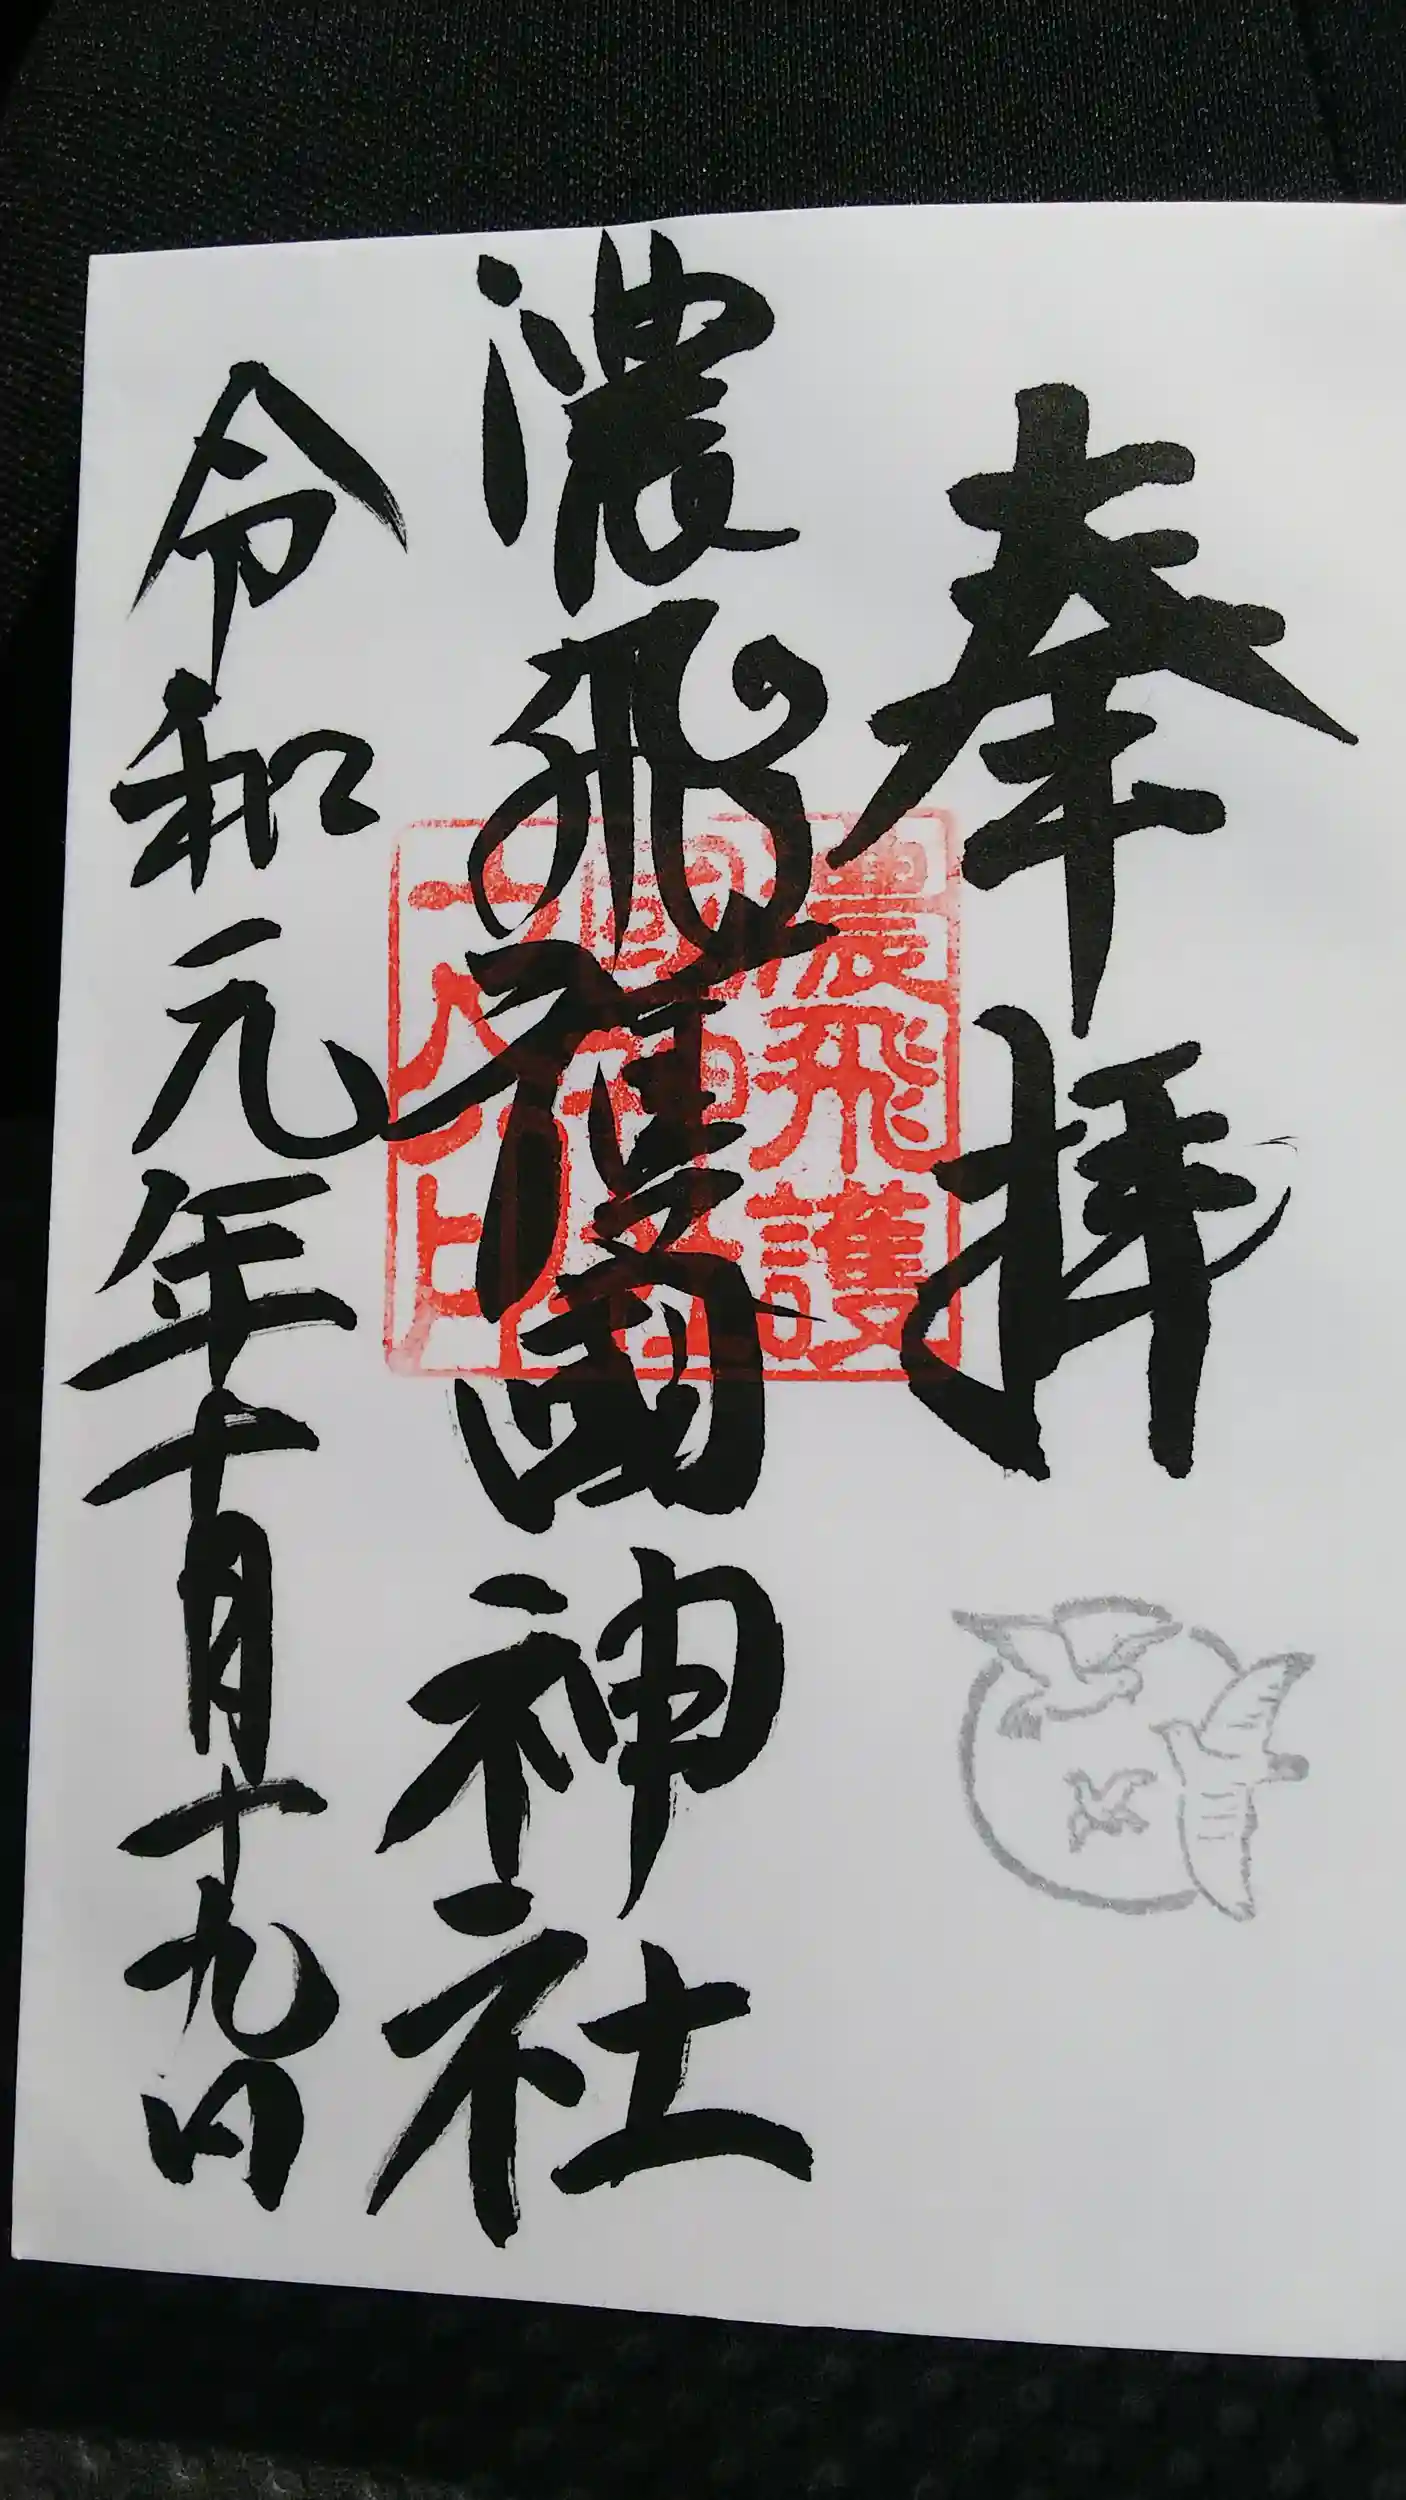 奉拝
濃飛護國神社
令和元年十月十九日
濃飛護
國神社
之印